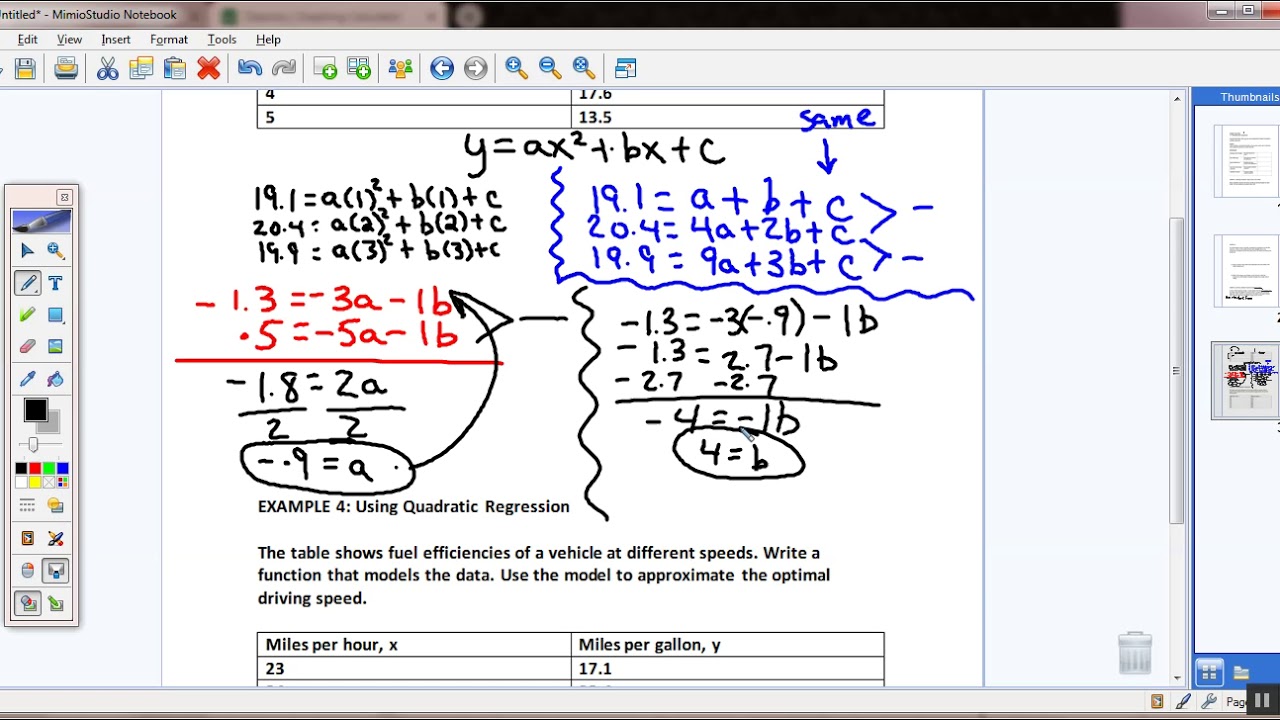 Untitled* - MimioStudio Notebook
Edit View Insert Format Tools Help
Thumbnails
4 17.6
5 13.5
same
y = ax² + bx + c
19.1 = a(1)² + b(1) + c
20.4 = a(2)² + b(2) + c
19.9 = a(3)² + b(3) + c
19.1 = a + b + c > -
20.4 = 4a + 2b + c
19.9 = 9a + 3b + c > -
-1.3 = -3a - 1b
.5 = -5a - 1b
-1.8 = 2a
2 2
-.9 = a
-1.3 = -3(-.9) - 1b
-1.3 = 2.7 - 1b
-2.7 -2.7
-4 = -1b
4 = b
EXAMPLE 4: Using Quadratic Regression
The table shows fuel efficiencies of a vehicle at different speeds. Write a
function that models the data. Use the model to approximate the optimal
driving speed.
Miles per hour, x Miles per gallon, y
23 17.1
Page